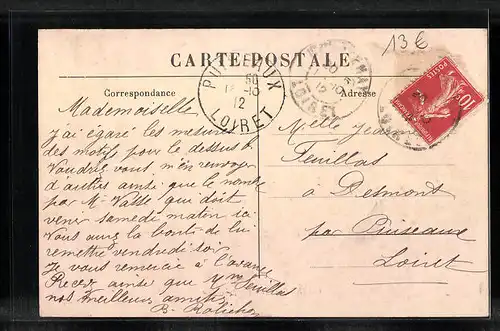 13 €
CARTE POSTALE
Correspondance
Adresse
PUISEAUX
50
12
LOIRET
LOIRET
10
Mademoiselle,
J'ai égaré les mesures
des motifs pour le dessus
Voudrez vous m'en renvoyer
d'autres ainsi que le nombre
par Mr qui doit
venir samedi matin ici
Vous aurez la bonté de lui
remettre vendredi soir
Je vous remercie à l'avance
Recevez ainsi que Mme Feuillas
nos meilleurs amitiés
B.
Melle Jeanne
Feuillas
à Desmont
par Puiseaux
Loiret